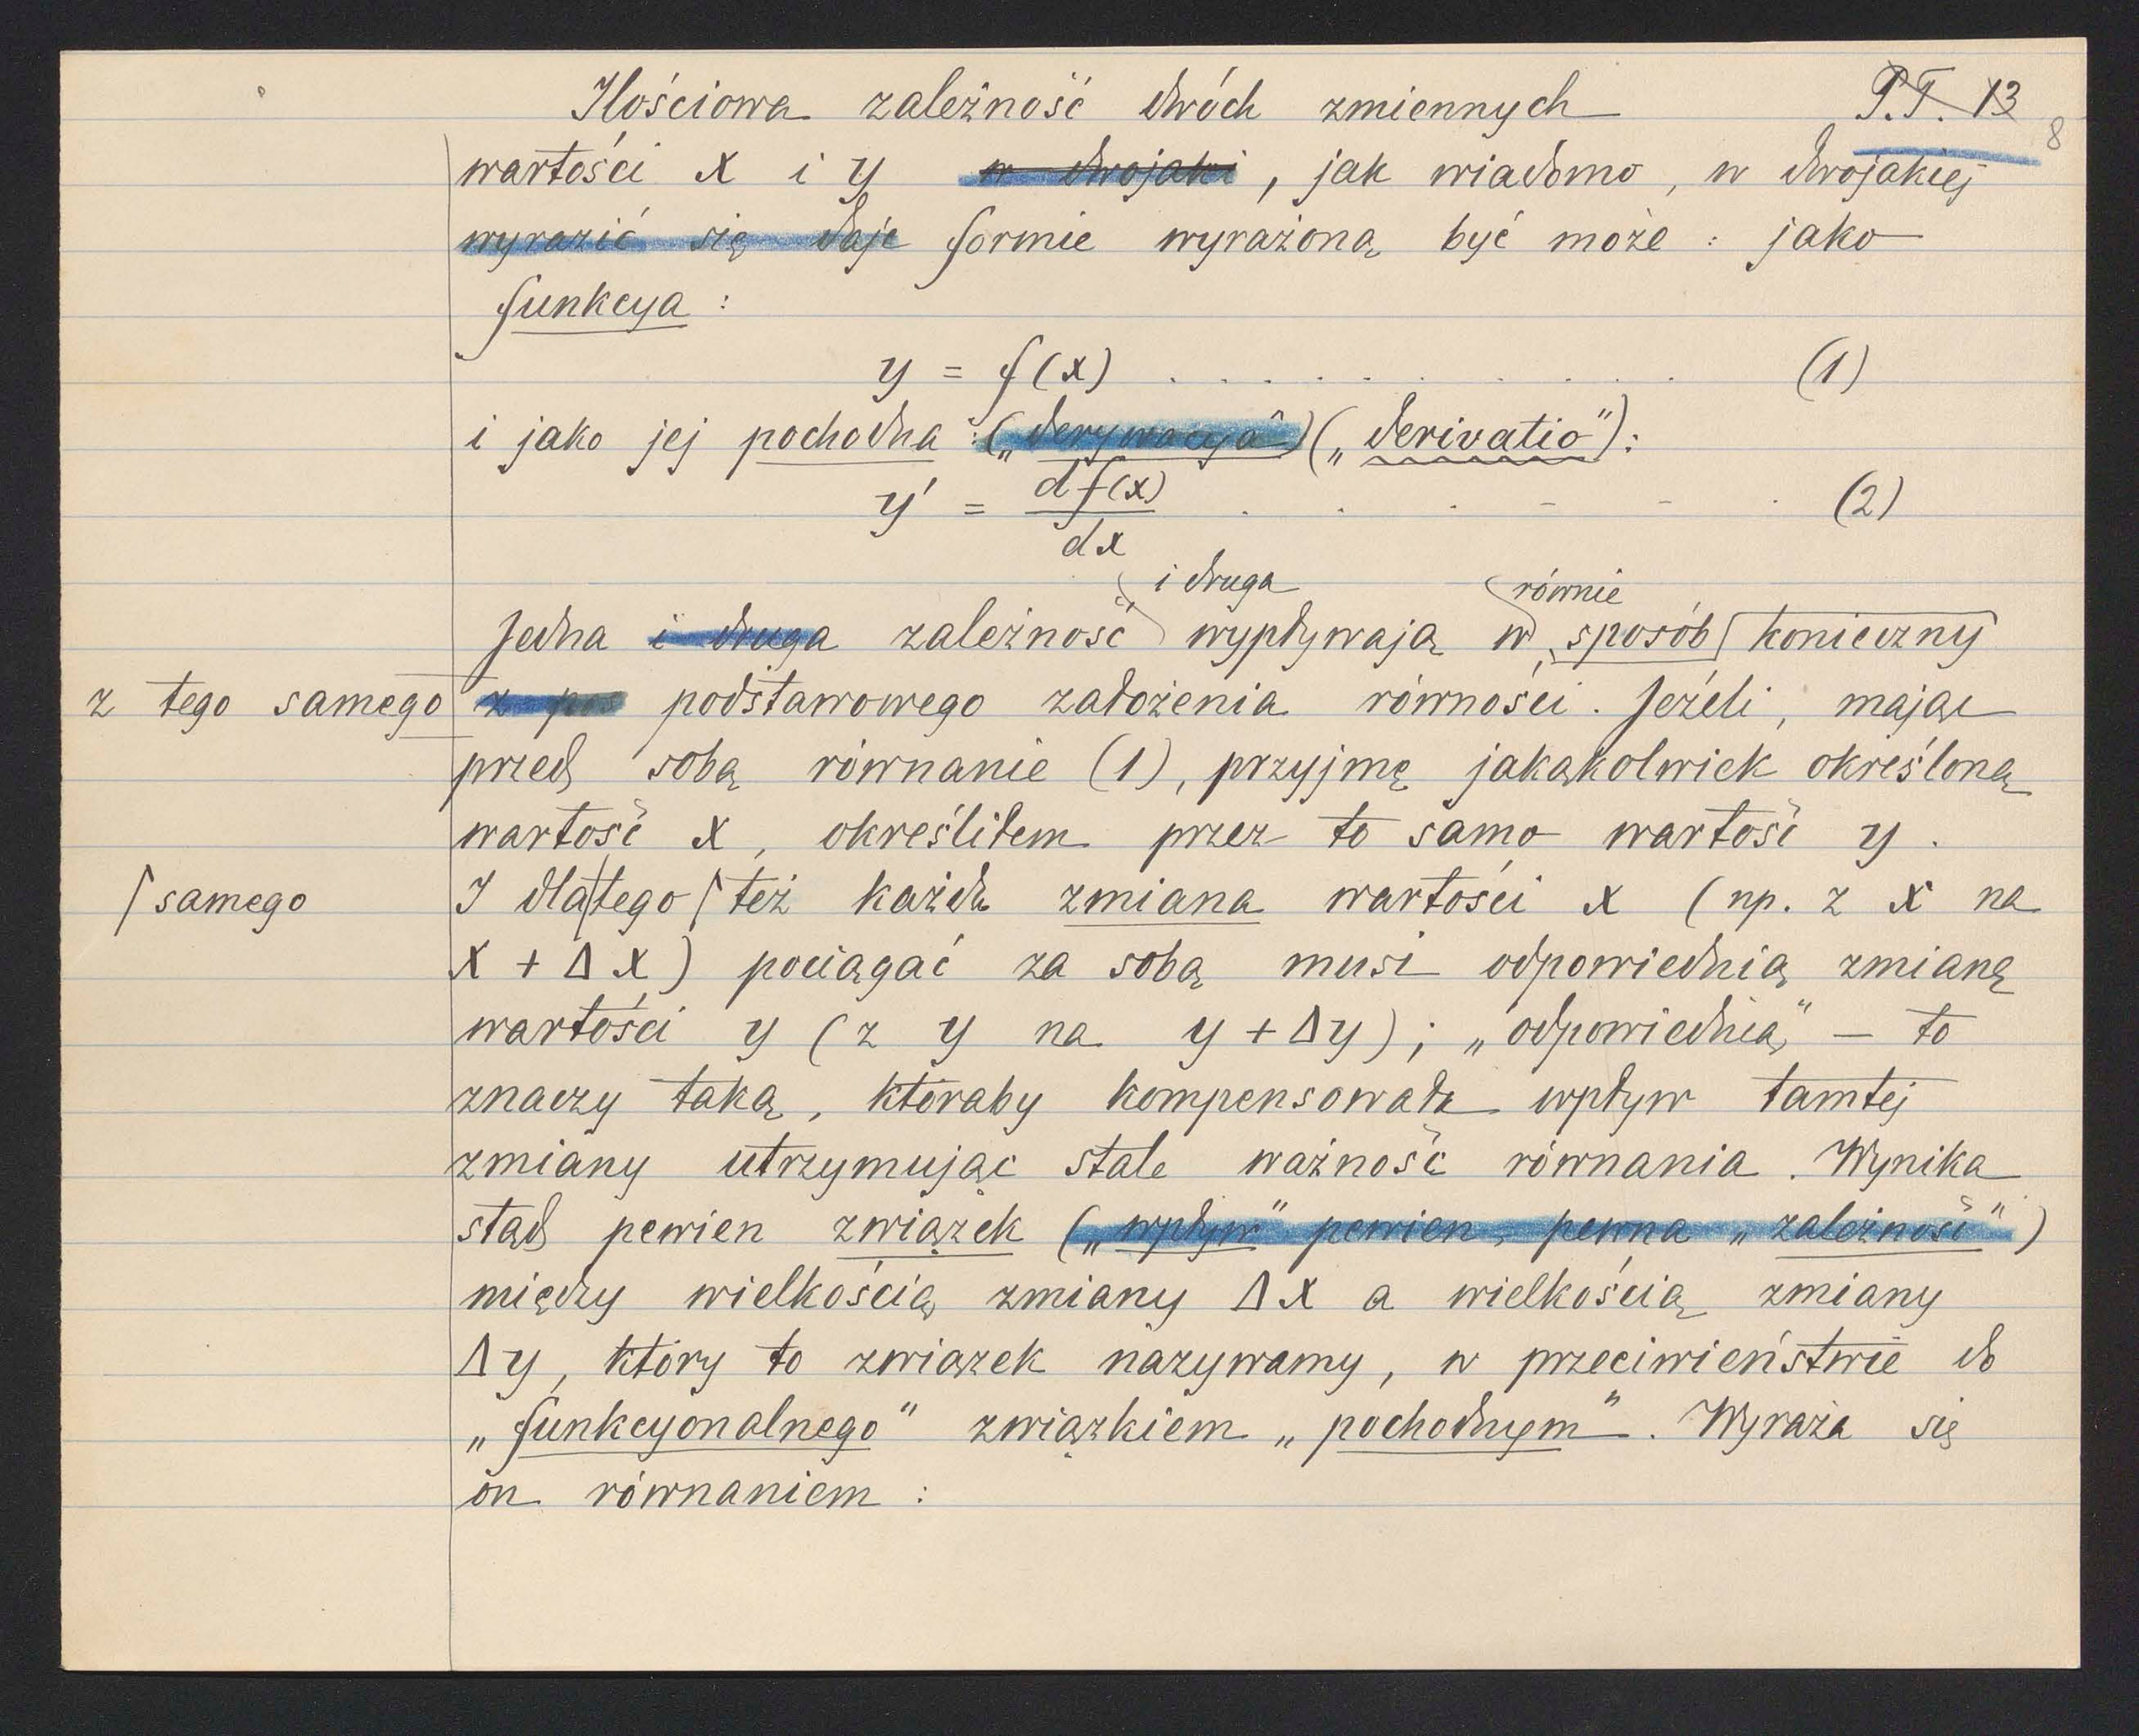 Ilościowa zależność dwóch zmiennych P.T. 13
8
wartości x i y w dwojaki, jak wiadomo, w dwojakiej
wyrazić się daje formie wyrażoną być może : jako
funkcya :
y = f(x) . . . . . . . . . . . (1)
i jako jej pochodna : („derywacya") („derivatio"):
y' = df(x)/dx . . . . . . (2)
i druga równie
Jedna i druga zależność wypływają w sposób konieczny
z tego samego z pos podstawowego założenia równości. Jeżeli, mając
przed sobą równanie (1), przyjmę jakąkolwiek określoną
wartość x, określiłem przez to samo wartość y.
samego I dlatego też każda zmiana wartości x (np. z x na
x + Δx) pociągać za sobą musi odpowiednią zmianę
wartości y (z y na y + Δy); „odpowiednią" — to
znaczy taką, któraby kompensowała wpływ tamtej
zmiany utrzymując stale ważność równania. Wynika
stąd pewien związek („wpływ" pewien, pewna „zależność")
między wielkością zmiany Δx a wielkością zmiany
Δy, który to związek nazywamy, w przeciwieństwie do
„funkcyonalnego" związkiem „pochodnym". Wyraża się
on równaniem :